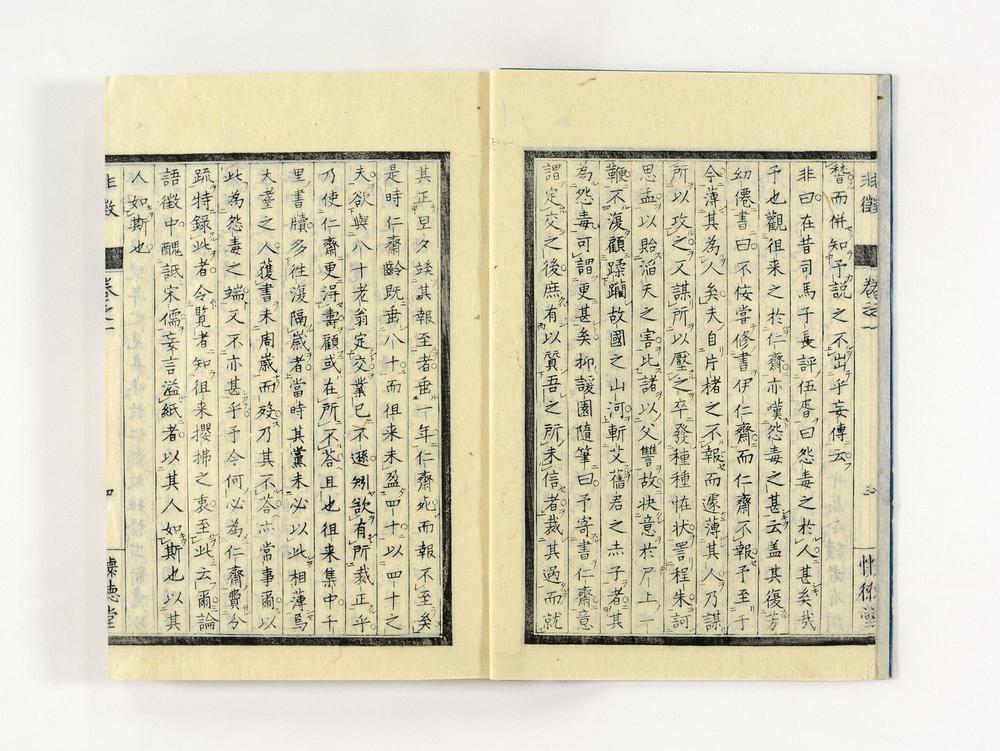 非徵
卷之一
三
懷德堂
替而併知予說之不出乎妄傳云
非曰在昔司馬子長評伍胥曰怨毒之於人甚矣哉
予也觀徂來之於仁齋亦嘆怨毒之甚云蓋其復芳
幼僊書曰不佞嘗修書伊仁齋而仁齋不報予至于
今薄其為人矣夫自片楮之不報而遽薄其人乃謀
所以攻之又謀所以壓之卒發種種恠状詈程朱訶
思孟以貽滔天之害比諸以父讐故快意於尸上一
鞭不復顧蹂躪故國之山河斬艾舊君之赤子者其
為怨毒可謂更甚矣抑諼園隨筆曰予寄書仁齋意
謂定交之後庶有以質吾之所未信者裁其過而就
其正旦夕竢其報至者垂一年仁齋死而報不至矣
是時仁齋齡既垂八十而徂来未盈四十以四十之
夫欲與八十老翁定交業已不遜矧欲有所裁正乎
乃使仁齋更得壽顧或在所不荅且也徂来集中千
里書牘多徃復隔嵗者當時其黨未必以此相薄焉
大耋之人獲書未周嵗而歿乃其不荅亦常事爾以
此為怨毒之端又不亦甚乎予今何必為仁齋費今
疏特錄此者令覧者知徂来攖拂之衷至此云爾論
語徵中醜詆宋儒妄言溢紙者以其人如斯也以其
人如斯也
非徵
卷之一
四
懷德堂